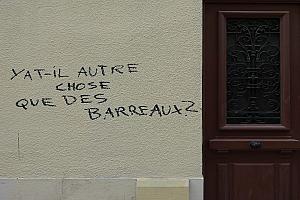 YAT-IL AUTRE
CHOSE
QUE DES
BARREAUX?